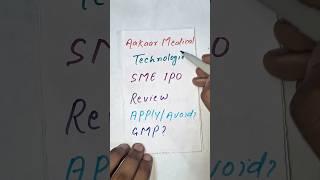 Aakaar Medical
Technologi
SME IPO
Review
APPLY/Avoid?
GMP?